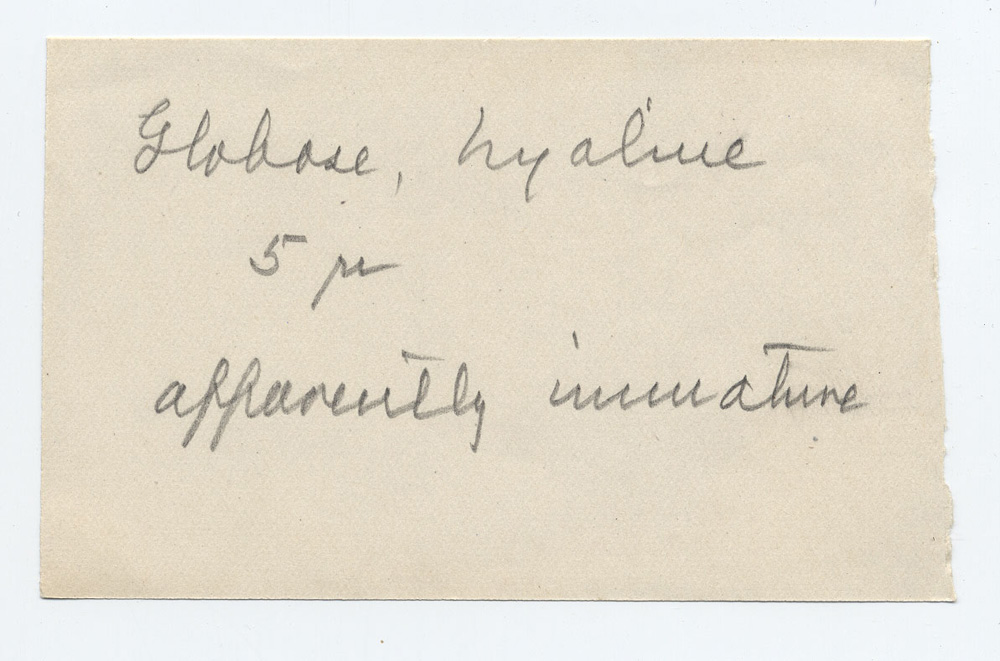 Globose, hyaline
5 µ
apparently immature